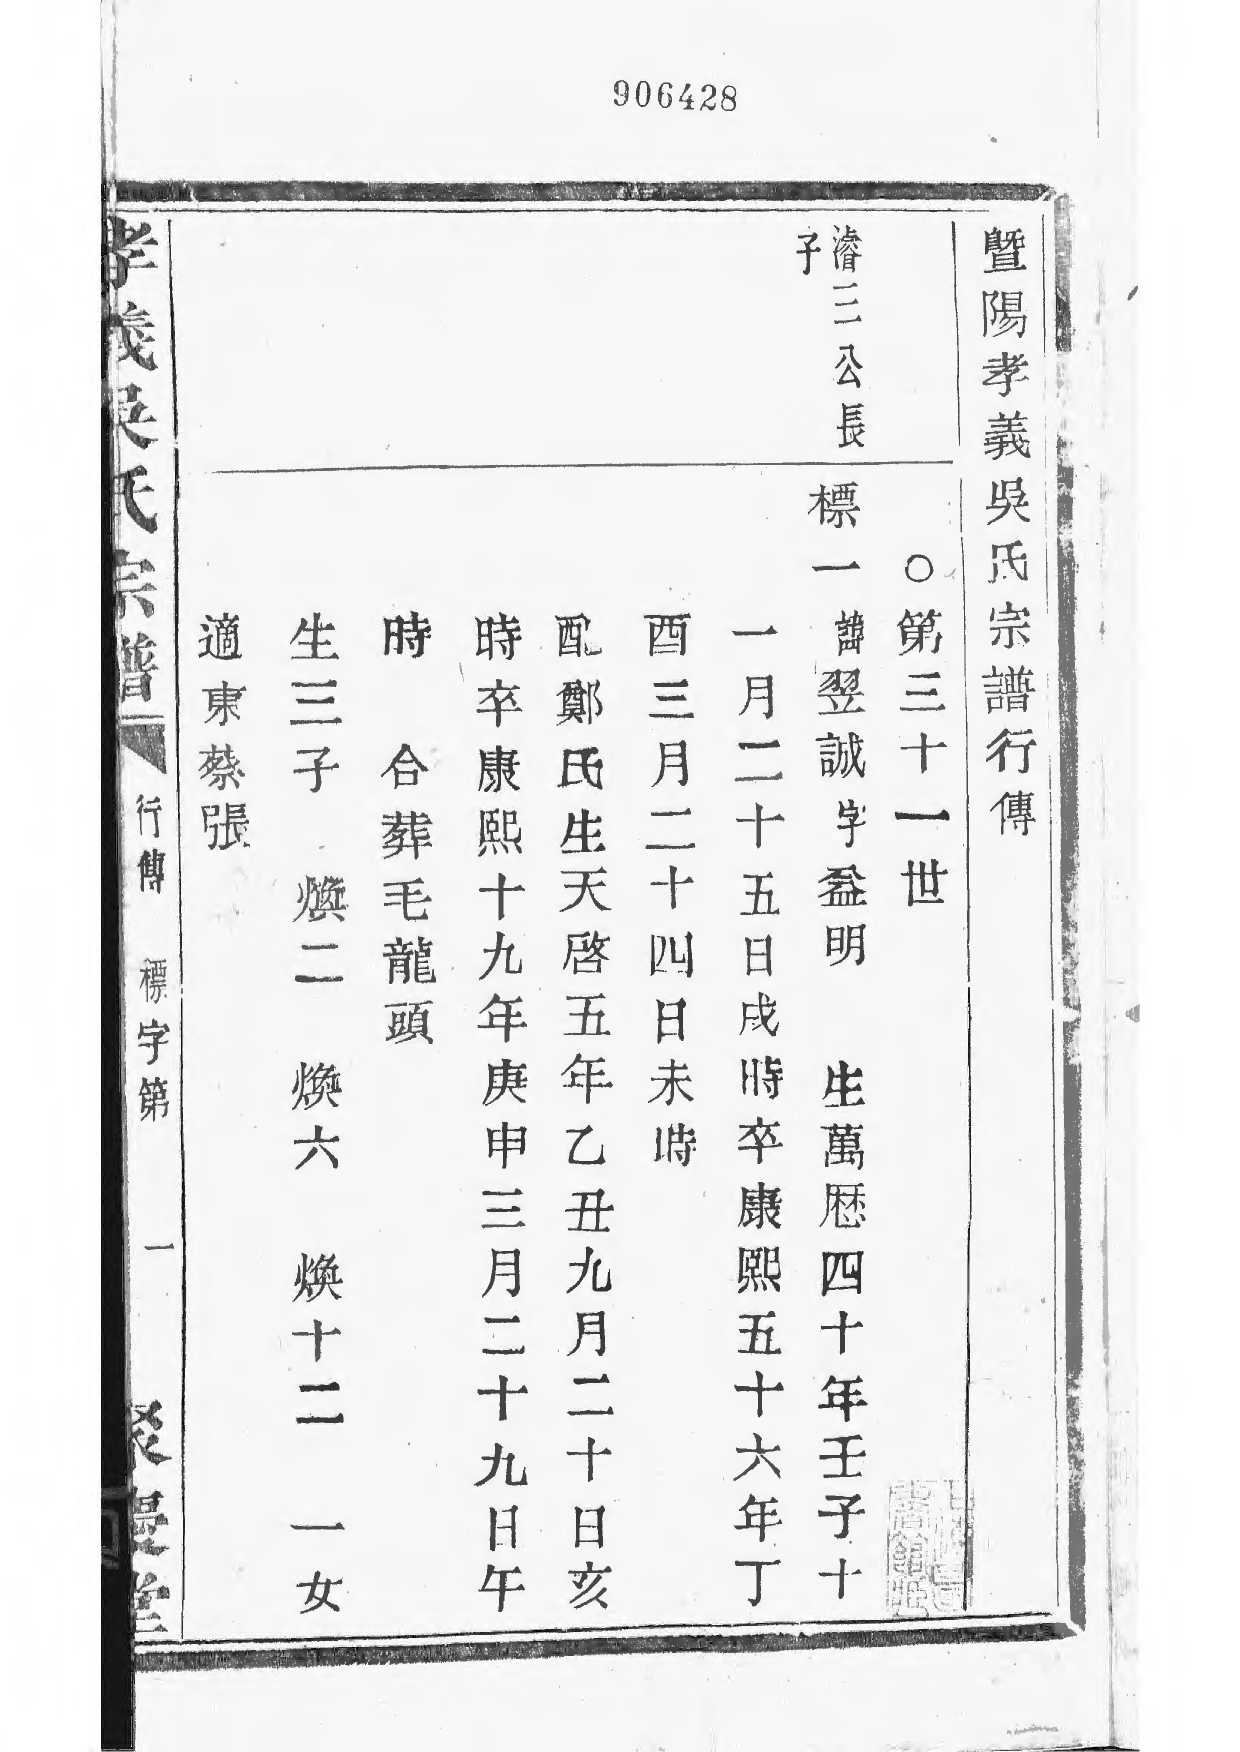 906428
暨陽孝義吳氏宗譜行傳
○第三十一世
濬三公長
子
標一 諱翌誠字益明 生萬厯四十年壬子十
一月二十五日戌時卒康熙五十六年丁
酉三月二十四日未時
配鄭氏生天啓五年乙丑九月二十日亥
時卒康熙十九年庚申三月二十九日午
時 合葬毛龍頭
生三子 煥二 煥六 煥十二 一女
適東蔡張
孝義吳氏宗譜 行傳 標字第 一